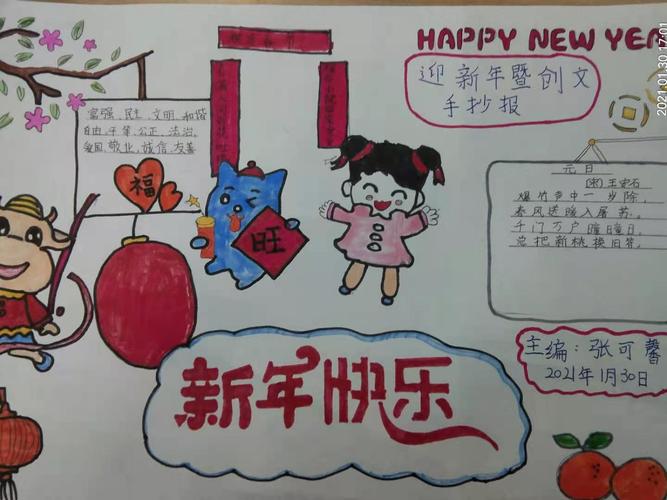 HAPPY NEW YEA
迎新年暨创文
手抄报
富强、民主、文明、和谐
自由、平等、公正、法治、
爱国、敬业、诚信、友善
福
旺
元日
[宋]王安石
爆竹声中一岁除,
春风送暖入屠苏。
千门万户曈曈日,
总把新桃换旧符。
新年快乐
主编:张可馨
2021年1月30日
2021/01/30 17:01